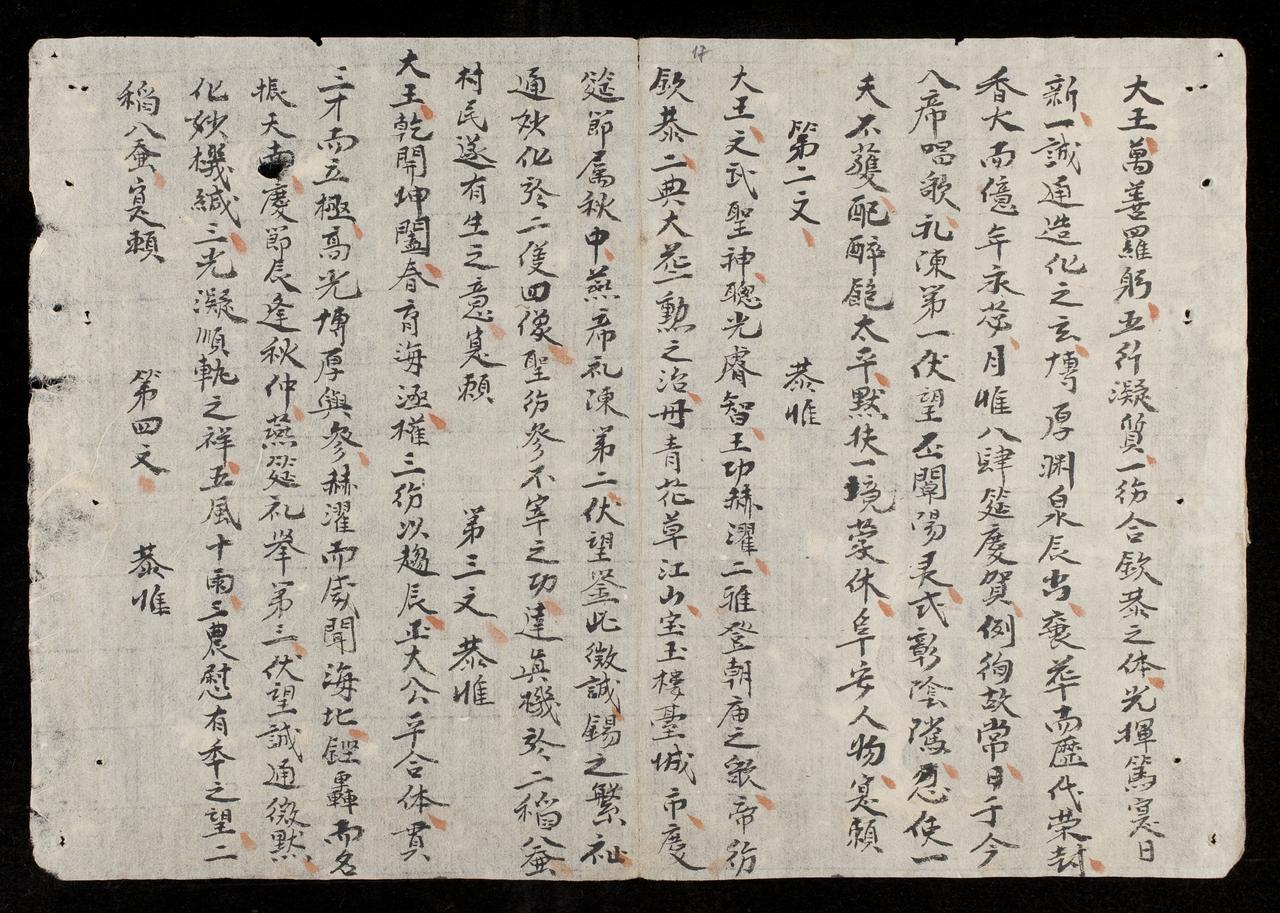 17
大王萬善羅躬五行凝質一彷合欽恭之体光揮篤寔日
新一誠通造化之玄慱厚渊泉辰出裒苹而歷代荣封
香火而億年永苾月惟八肆筵慶賀例徇故常日于今
入席唱歌礼陳第一伏望丕闡陽灵式彰陰隲忽使一
夫不獲配醉飽太平默扶一境蒙休阜安人物寔頼
第二文 恭惟
大王文武聖神聰光睿智王功赫濯二雅登朝庙之歌帝彷
欽恭二典大𠀧勲之治丹青花草江山宝玉樓臺城市度
筵節属秋中燕席礼陳第二伏望鉴此微誠錫之繁祉
通妙化於二隻四像聖彷參不宰之功達真機於二稻八蚕
村民遂有生之意寔頼 第三文 恭惟
大王乾開坤闔春育海涵權三彷以趨辰正大公平合体貫
三才而立極高光博厚與參赫濯而咸聞海北鏗轟而名
振天南慶節辰逢秋仲燕筵礼举第三伏望誠通微默
化妙機緘三光凝順軌之祥五風十雨三農慰有本之望二
稻八蚕寔頼 第四文 恭惟